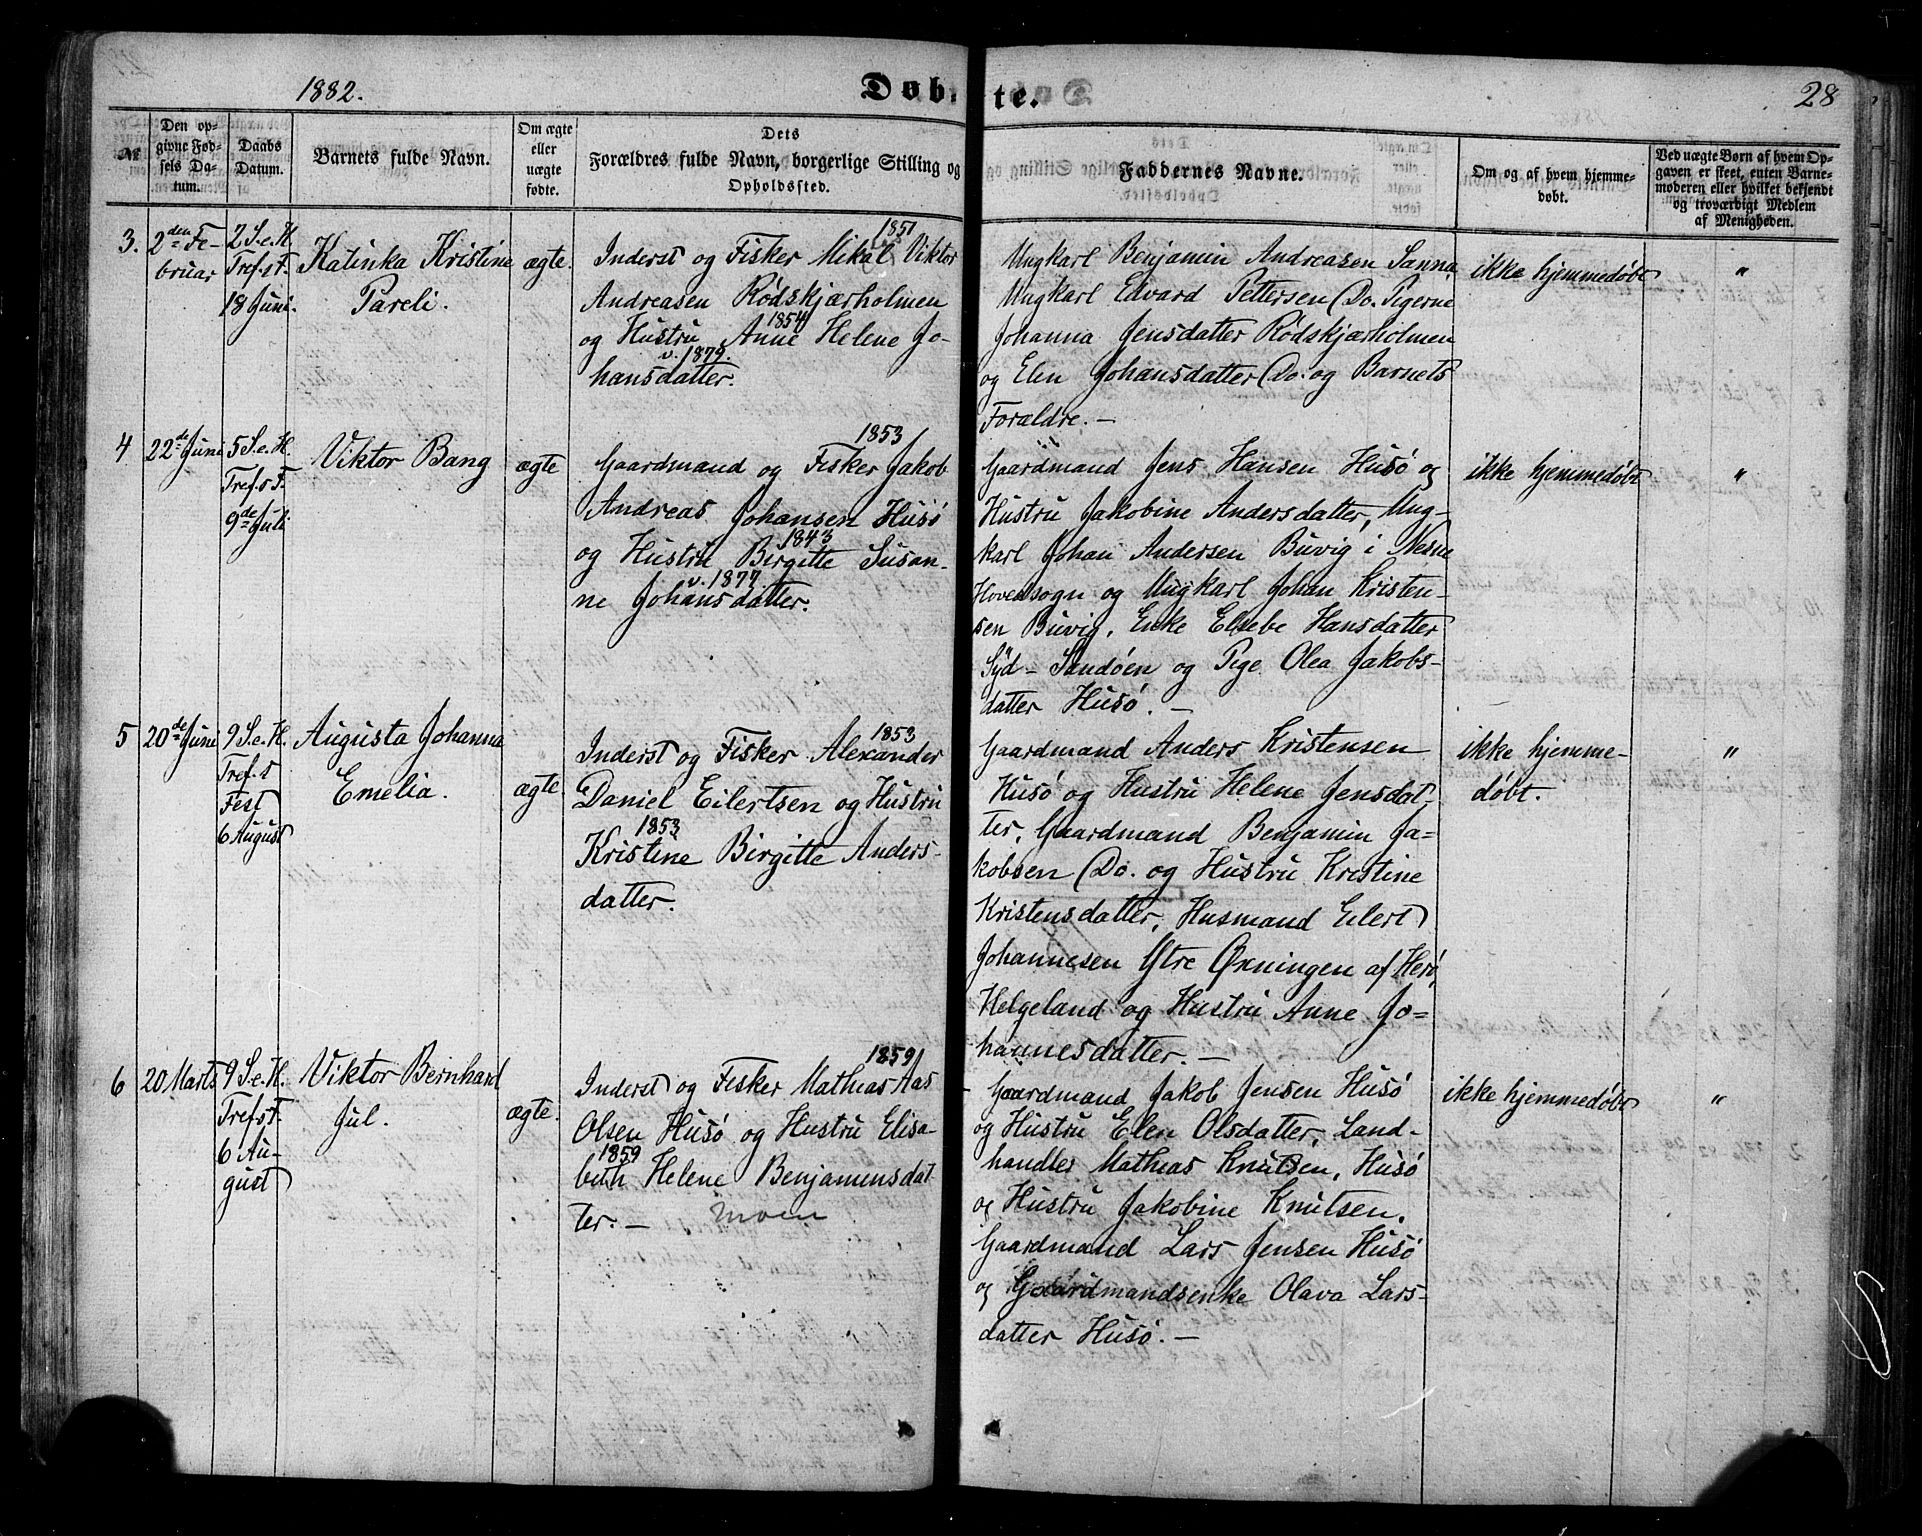 1882.
Døbte.
28
№
Den opgivne Fødsels Datum.
Daabs Datum.
Barnets fulde Navn.
Om ægte eller uægte fødte.
Dets Forældres fulde Navn, borgerlige Stilling og Opholdssted.
Faddernes Navne.
Om og af hvem hjemmedøbt.
Ved uægte Børn af hvem Opgaven er skeet, enten Barnemoderen eller hvilket bekjendt og troværdigt Medlem af Menigheden.
3.
2den Fe-
bruar
2 S. e. H.
Tref.s F.
18 Juni.
Katinka Kristine
Pareli.
ægte.
1851
Inderst og Fisker Mikal Viktor
Andreasen Rødskjærholmen
1854
og Hustru Anne Helene Jo-
v. 1879.
hansdatter.
Ungkarl Benjamin Andreasen Sanna,
Ungkarl Edvard Pettersen (Do. Pigerne
Johanna Jensdatter Rødskjærholmen
og Elen Johansdatter (Do. og Barnets
Forældre. —
ikke hjemmedøbt
"
4
22de Juni
5 S. e. H.
Tref.s F.
9de Juli
Viktor Bang
ægte
1853
Gaardmand og Fisker Jakob
Andreas Johansen Husø
1843
og Hustru Birgitte Susan-
v. 1877.
ne Johansdatter.
Gaardmand Jens Hansen Husø og
Hustru Jakobine Andersdatter, Ung-
karl Johan Andersen Buvig i Nesne
Hovedsogn og Ungkarl Johan Kristen-
sen Buvig, Enke Elsebe Hansdatter
Syd-Sandøen og Pige Olea Jakobs-
datter Husø. —
ikke hjemmedøbt
"
5
20de Juni
9 S. e. H.
Tref.s
Fest
6 August
Augusta Johanna
Emelia.
ægte.
1853
Inderst og Fisker Alexander
Daniel Eilertsen og Hustru
1853
Kristine Birgitte Anders-
datter.
Gaardmand Anders Kristensen
Husø og Hustru Helene Jensdat-
ter, Gaardmand Benjamin Ja-
kobsen (Do. og Hustru Kristine
Kristensdatter, Husmand Eilert
Johannesen Ytre Øxningen af Herø,
Helgeland og Hustru Anne Jo-
hannesdatter. —
ikke hjemme-
døbt.
"
6
20 Marts
9 S. e. H.
Tref.s F.
6 Au-
gust
Viktor Bernhard
Jul.
ægte.
1859
Inderst og Fisker Mathias Aas
Olsen Husø og Hustru Elisa-
1859
beth Helene Benjaminsdat-
ter. — Moen
Gaardmand Jakob Jensen Husø
og Hustru Elen Olsdatter, Land-
handler Mathias Knutsen, Husø
og Hustru Jakobine Knutsen.
Gaardmand Lars Jensen Husø
og Gaardmandsenke Olava Lars-
datter Husø. —
ikke hjemmedøbt
"